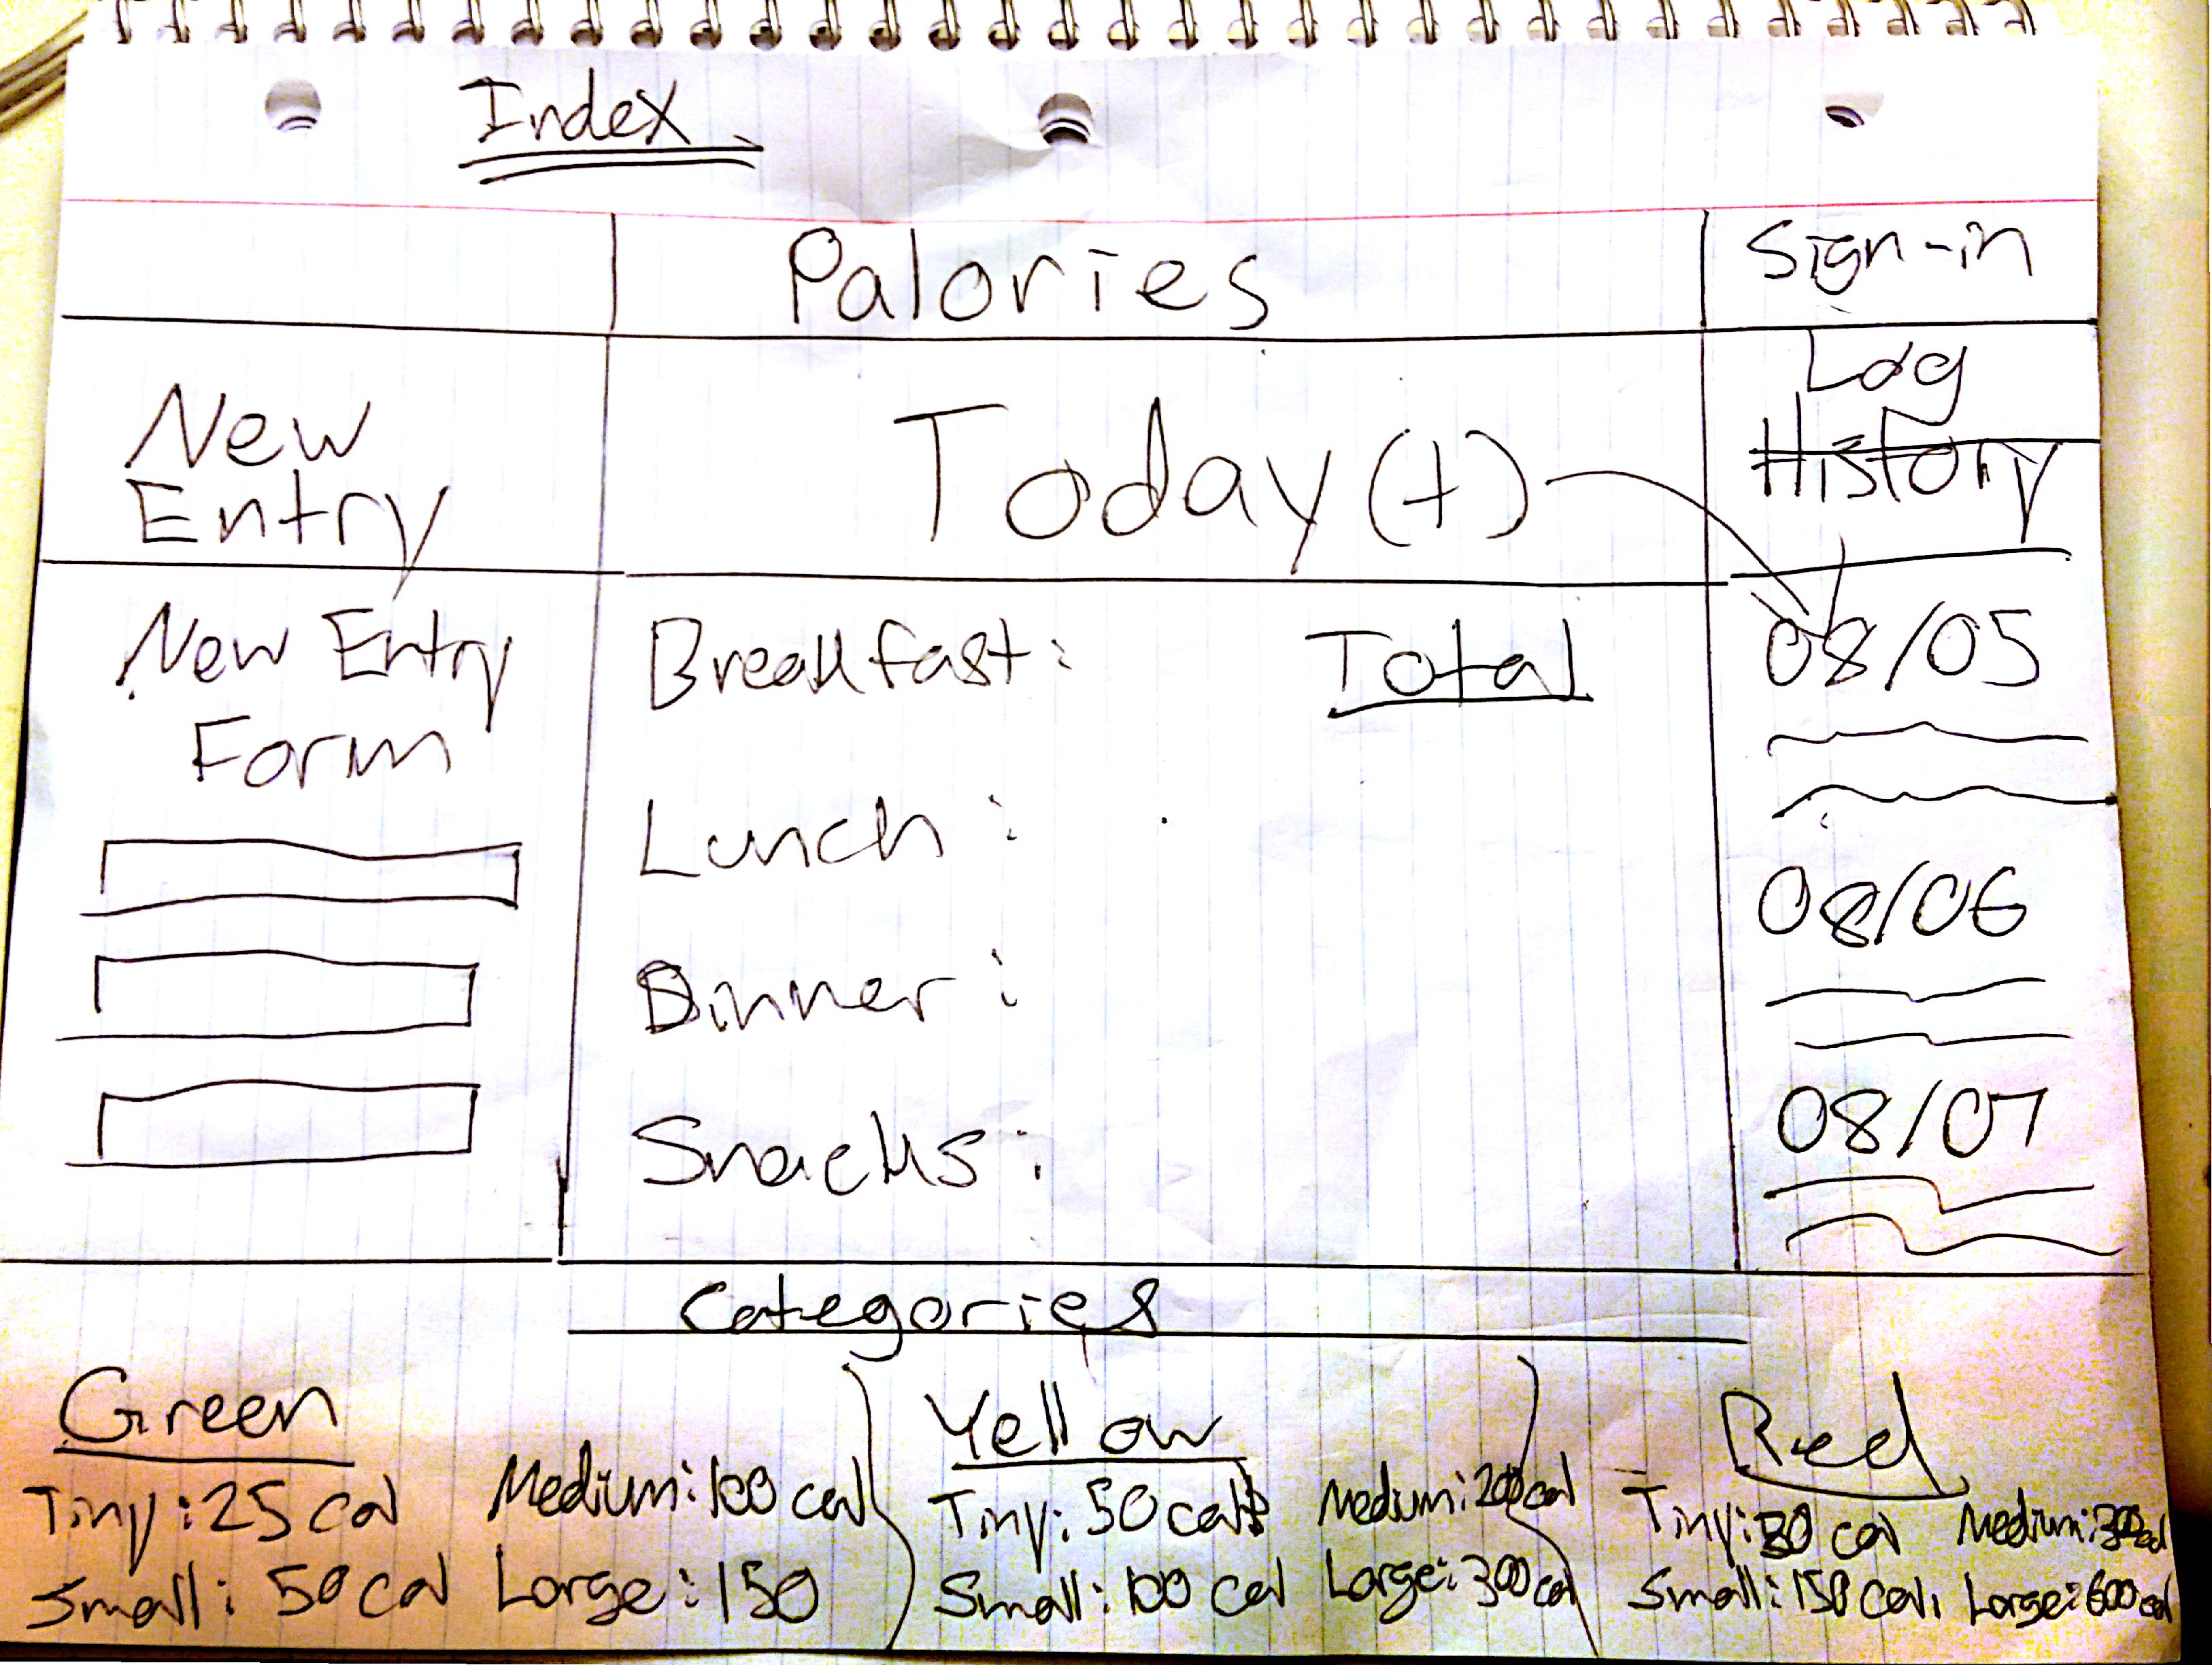 Index
Palories
Sign-in
New
Entry
Today (+)
Log
History
New Entry
Form
Breakfast:
Total
Lunch:
Dinner:
Snacks:
08/05
08/06
08/07
Categories
Green
Tiny: 25 cal
Medium: 100 cal
Small: 50 cal
Large: 150
Yellow
Tiny: 50 cal
Medium: 200 cal
Small: 100 cal
Large: 300 cal
Red
Tiny: cal
Medium: 300 cal
Small: 150 cal.
Large: 600 cal